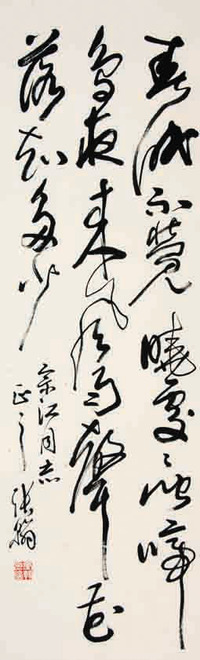 春眠不覺曉處處聞啼
鳥夜來風雨聲花
落知多少
宗江同志
正之 張